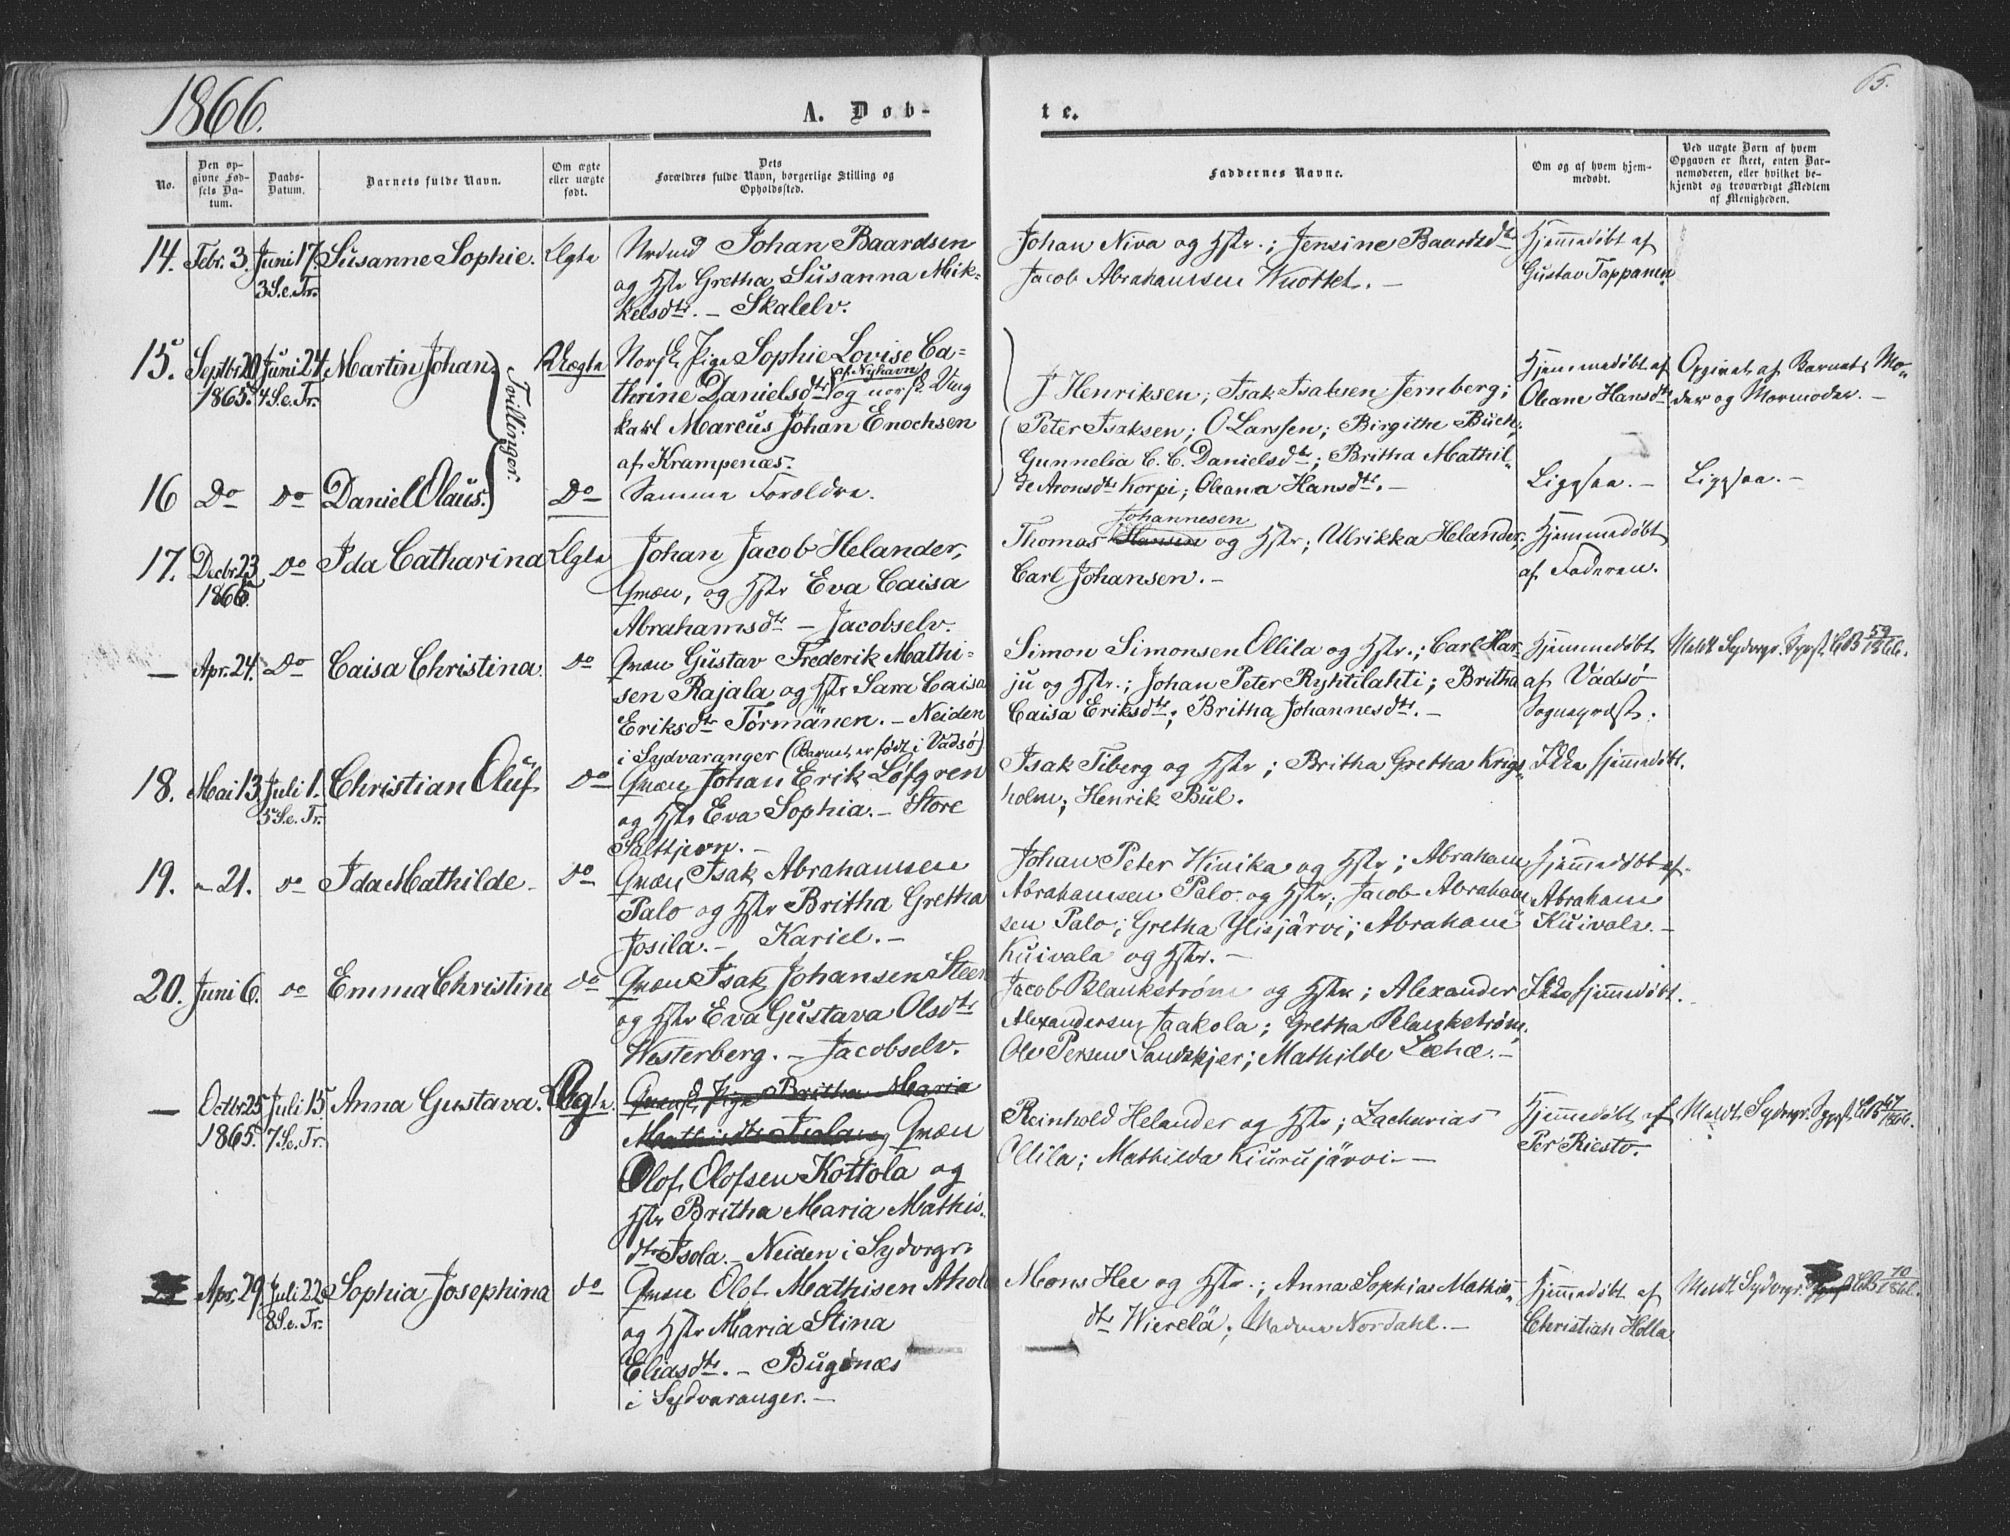 1866.
A. Døb-
te.
65.
No.
Den op-
givne Fød-
sels Da-
tum.
Daabs-
Datum.
Barnets fulde Navn.
Om ægte
eller uægte
født.
Dets
Forældres fulde Navn, borgerlige Stilling og
Opholdssted.
Faddernes Navne.
Om og af hvem hjem-
medøbt.
Ved uægte Børn af hvem
Opgaven er skeet, enten Bar-
nemoderen, eller hvilket be-
kjendt og troværdigt Medlem
af Menigheden.
14. Febr. 3. Juni 17. Susanne Sophie. Ægte
3 S. e. Tr.
Johan Baardsen
og Hstr Gretha Susanna Mik-
kelsdtr. – Skalelv.
Johan Niva og Hstr.; Jensine Baardsdtr
Jacob Abrahamsen Wuottet. –
Hjemmedøbt af
Gustav Tappanen.
15. Septbr. 20 Juni 24 Martin Johan Uægte
1865. 4 S. e. Tr.
Tvillinger.
Norsk Pige Sophie Lovise Ca-
thrine Danielsdtr (af Nyhavn) og norsk Ung
karl Marcus Johan Enochsen
af Krampenæs.
J Henriksen; Isak Isaksen Jernberg;
Peter Isaksen; O Larssen; Birgithe Buch;
Gunnelia C. C. Danielsdtr; Britha Mathil-
de Aronsdtr Korpi; Oleana Hansdtr. –
Hjemmedøbt af
Oleane Hansdtr
Opgivet af Barnets Mo-
der og Mormoder. –
16 Do do Daniel Olaus. Do
Samme Forældre.
Ligesaa. –
Ligesaa. –
17. Decbr. 23 do Ida Catharina Ægte
1865.
Johan Jacob Helander,
Qvæn, og Hstr Eva Caisa
Abrahamsdtr – Jacobselv.
Johannesen
Thomas Hansen og Hstr; Ulrikka Helander,
Carl Johansen. –
Hjemmedøbt
af Faderen.
— Apr. 24. Do Caisa Christina. do
Qvæn Gustav Frederik Mathi-
sen Rajala og Hstr Sara Caisa
Eriksdtr Törmänen. – Neiden
i Sydvaranger (Barnet er født i Vadsø)
Simon Simonsen Ollila og Hstr.; Carl Har-
ju og Hstr.; Johan Peter Ryhtilahti; Britha
Caisa Eriksdtr; Britha Johannesdtr. –
Hjemmedøbt
af Vadsø
Sognepræst.
Meldt Sydvrgr. Sgpst. CB 59/1866.
18. Mai 13. Juli 1. Christian Oluf. do
5 S. e. Tr.
Qvæn Johan Erik Löfgren
og Hstr Eva Sophia. – Store
Saltjern. –
Isak Tiberg og Hstr; Britha Gretha Krigs-
holm; Henrik Bul.
Ikke hjemmedøbt.
19. – 21. do Ida Mathilde – do
Qvæn Isak Abrahamsen
Palo og Hstr Britha Gretha
Josila. – Kariel. –
Johan Peter Winika og Hstr; Abraham
Abrahamsen Palo og Hstr; Jacob Abraham
sen Palo; Gretha Ylisjärvi; Abraham
Kuivala og Hstr. –
Hjemmedøbt af
Abraham
Kuivala. –
20. Juni 6. do Emma Christine do
Qvæn Isak Johansen Steen
og Hstr Eva Gustava Olsdtr
Westerberg. – Jacobselv.
Jacob Blankstrøm og Hstr; Alexander
Alexandersen Jaakola; Gretha Blankstrøm;
Ole Persen Sandskjer; Mathilde Læhæ. –
Ikke hjemmedøbt.
— Octbr. 25 Juli 15 Anna Gustava. Ægte.
1865. 7 S. e. Tr.
Qvensk Pige Britha Maria
Mathisdtr Isola og Qvæn
Olof Olofsen Kottola og
Hstr Britha Maria Mathis-
dtr Isola. – Neiden i Sydvrgr.
Reinhold Helander og Hstr; Zacharias
Ollila; Mathilda Kiurujärvi. –
Hjemmedøbt af
Per Riesto.
Meldt Sydvrgr. Sgpst. CB 47/1866.
Apr. 29. Juli 22 Sophia Josephina do
8 S. e. Tr.
Qvæn Olof Mathisen Ahola
og Hstr Maria Stina
Eliasdtr. – Bugønæs
i Sydvaranger. –
Mons Hee og Hstr.; Anna Sophia Mathis-
dtr Wierelä; Madme Nordahl. –
Hjemmedøbt af
Christian Holla
Meldt Sydvrgr. Sgpst CB 70/1866.